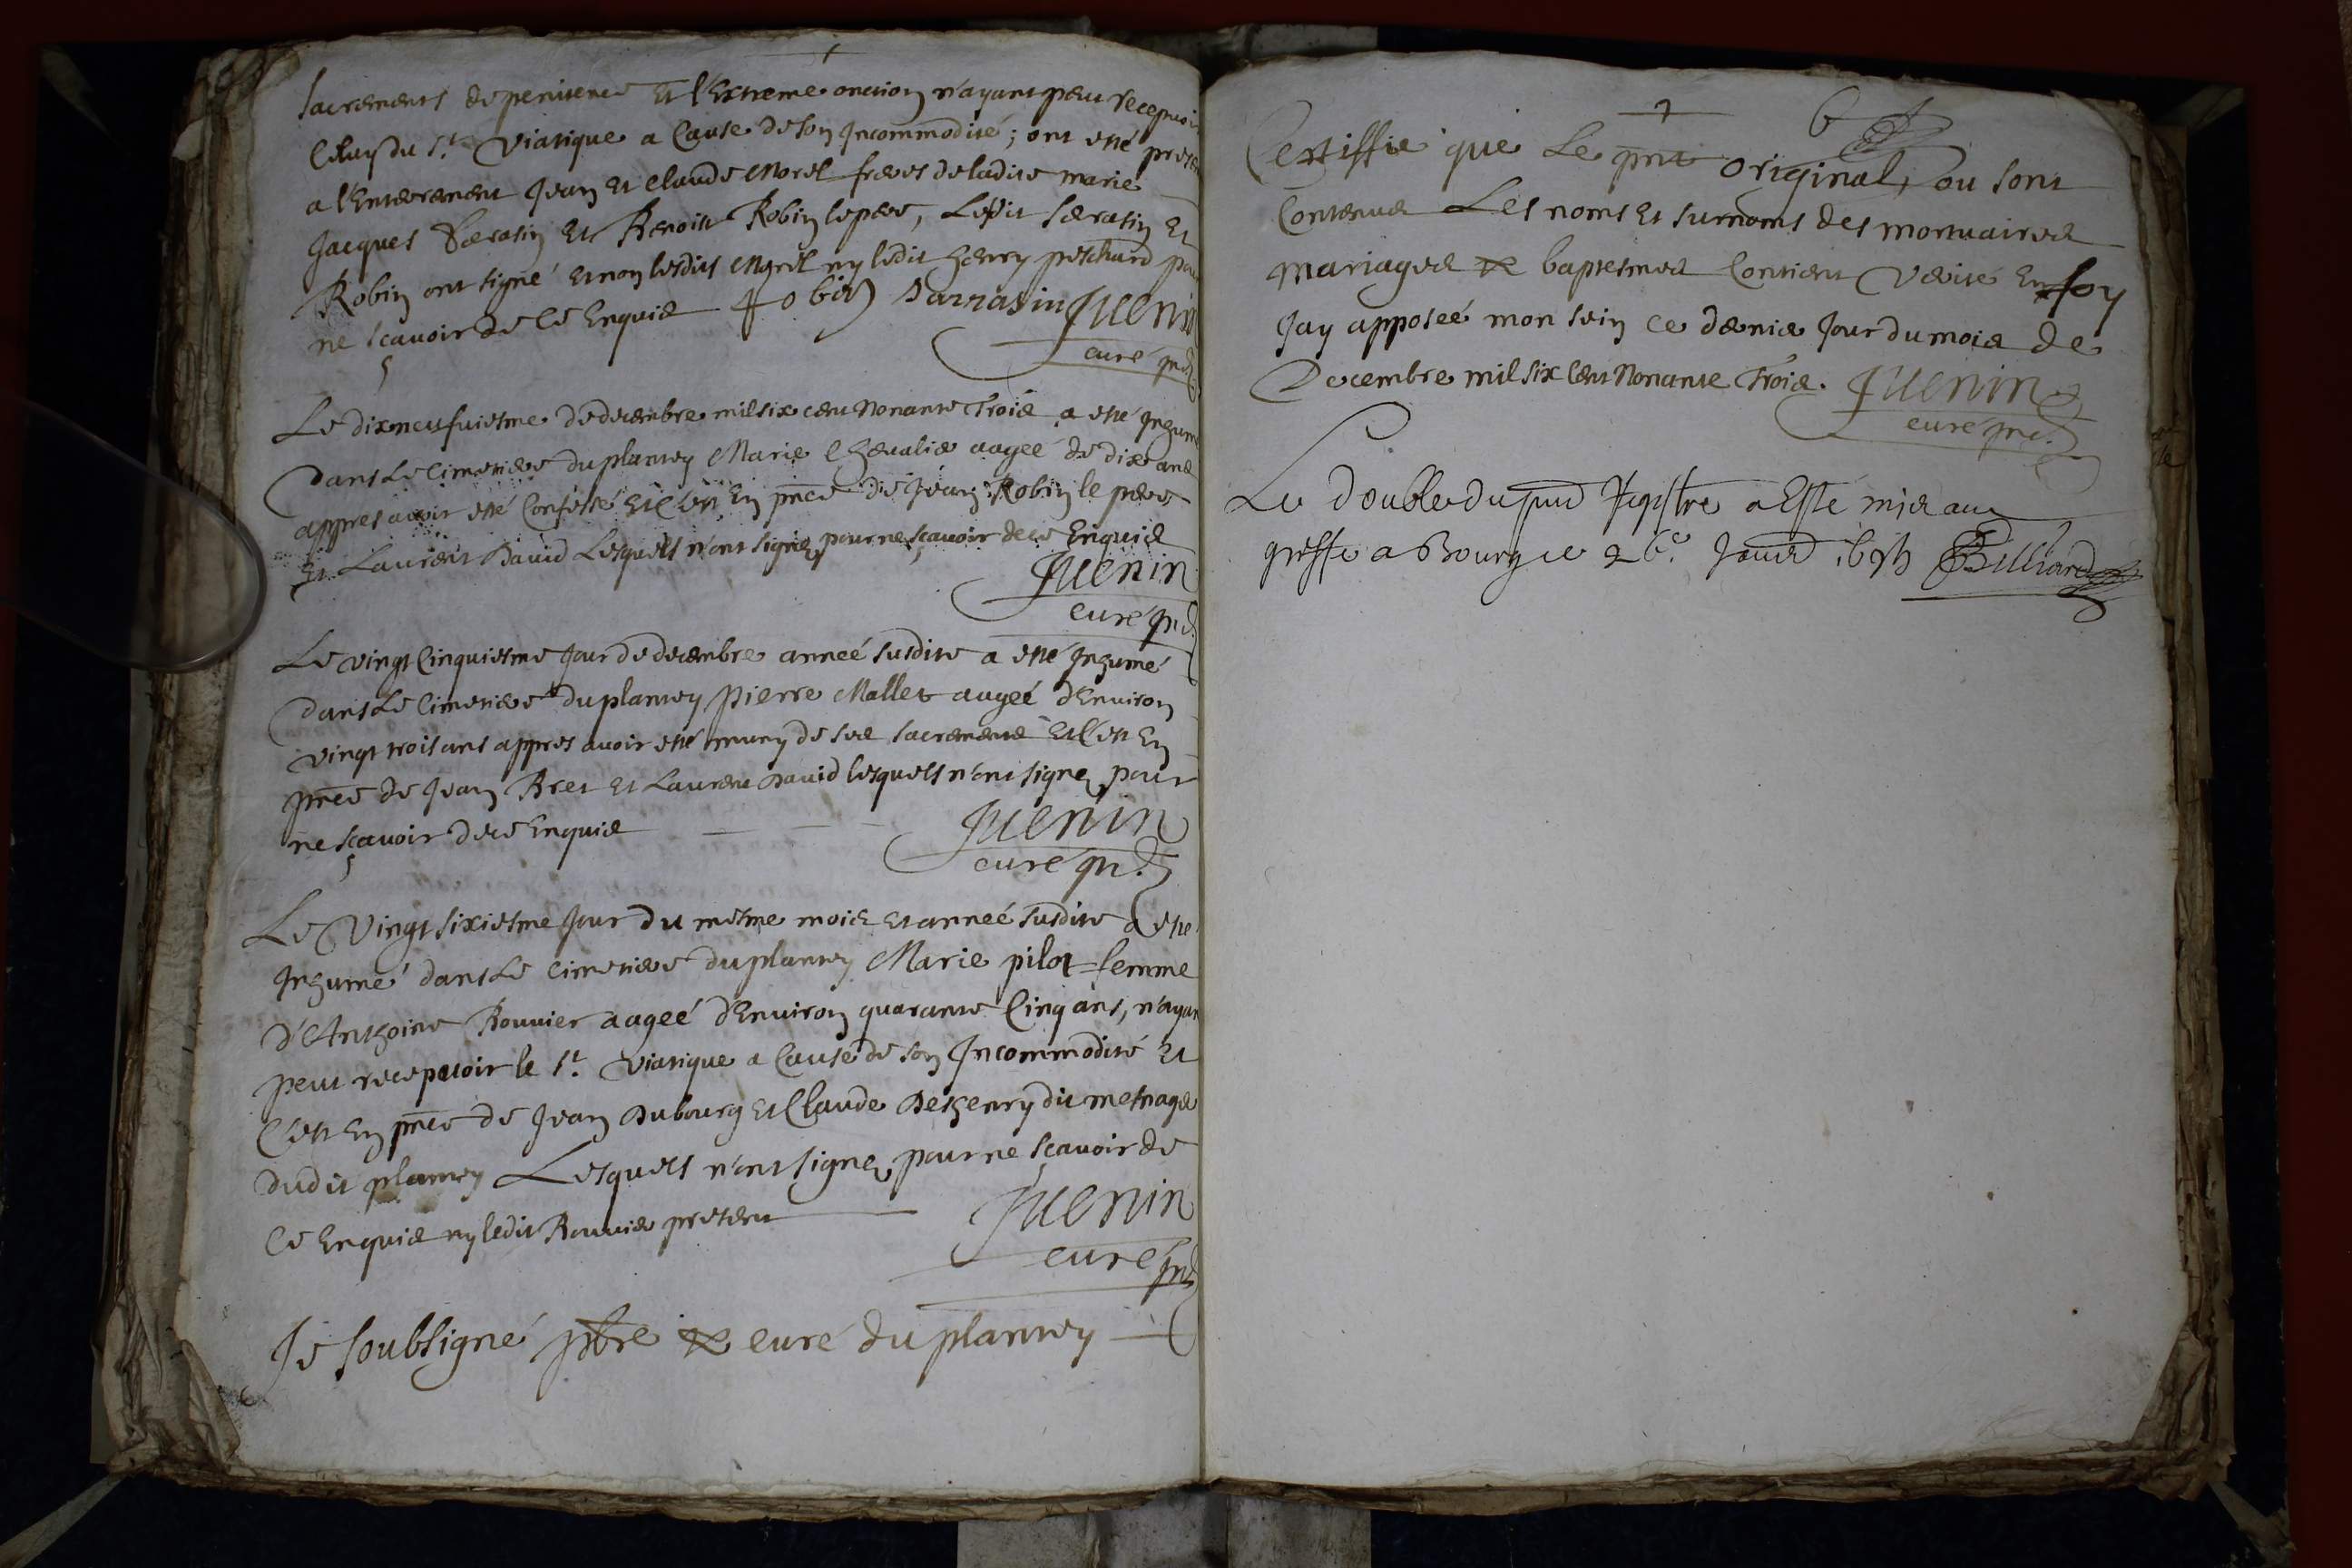 sacrements de penitence et l'Extreme onction n'ayant peut recepvoir
Celuy du St. Viatique a Cause de son Incommodité; ont esté presen
a l'Enterement Jean et Claude Morel freres de ladite marie
Jacques Serasin et Benoist Robin le pere, Ledit Serasin et
Robin ont signé et non lesdits Morel ny ledit henry peschard pour
ne sçavoir de ce Enquis Robin Sarrasin Juenin
curé
Le dixneufuiesme de decembre mil six cent Nonante Trois a esté Inhumé
dans Le Cimetiere du plantey Marie Chevalier aagée de dix ans
appres avoir esté Confessé et C'est En pnce de Jean Robin le pere
Et Laurent David Lesquels n'ont signez pour ne sçavoir de ce Enquis
Juenin
curé
Le vingt Cinquiesme Jour de decembre anneé susdite a esté Inhumé
dans Le Cimetiere du plantey pierre Mallet aageé d'Environ
vingt trois ans appres avoir esté muny de ses sacrements et C'est En
pnce de Jean Bret et Laurent David lesquels n'ont signez pour
ne sçavoir de ce Enquis Juenin
curé
Le Vingt sixiesme Jour du mesme mois et anneé susdite a esté
Inhumé dans Le Cimetiere du plantey Marie pilot femme
d'Anthoine Bouvier aageé d'Environ quarante Cinq ans, n'ayan
peut recepvoir le St. Viatique a Cause de son Incommodité et
C'est En pnce de Jean Dubourg et Claude Deshenry du mesnage
dudit plantey Lesquels n'ont signez pour ne sçavoir de
Ce Enquis ny ledit Bouvier present Juenin
curé
Je soubsigné pbre & curé du plantey
6
Certiffie que Le pnt original, ou sont
Contenus Les noms et surnoms des mortuaires
Mariages & baptesmes Contient Verité En foy
Jay apposeé mon sein ce dernier Jour du mois de
Decembre mil six Cent Nonante Trois. Juenin
curé
Le double du pnt Registre a Esté mis au
greffe a Bourg le 26e Janvier 1694 Billiard